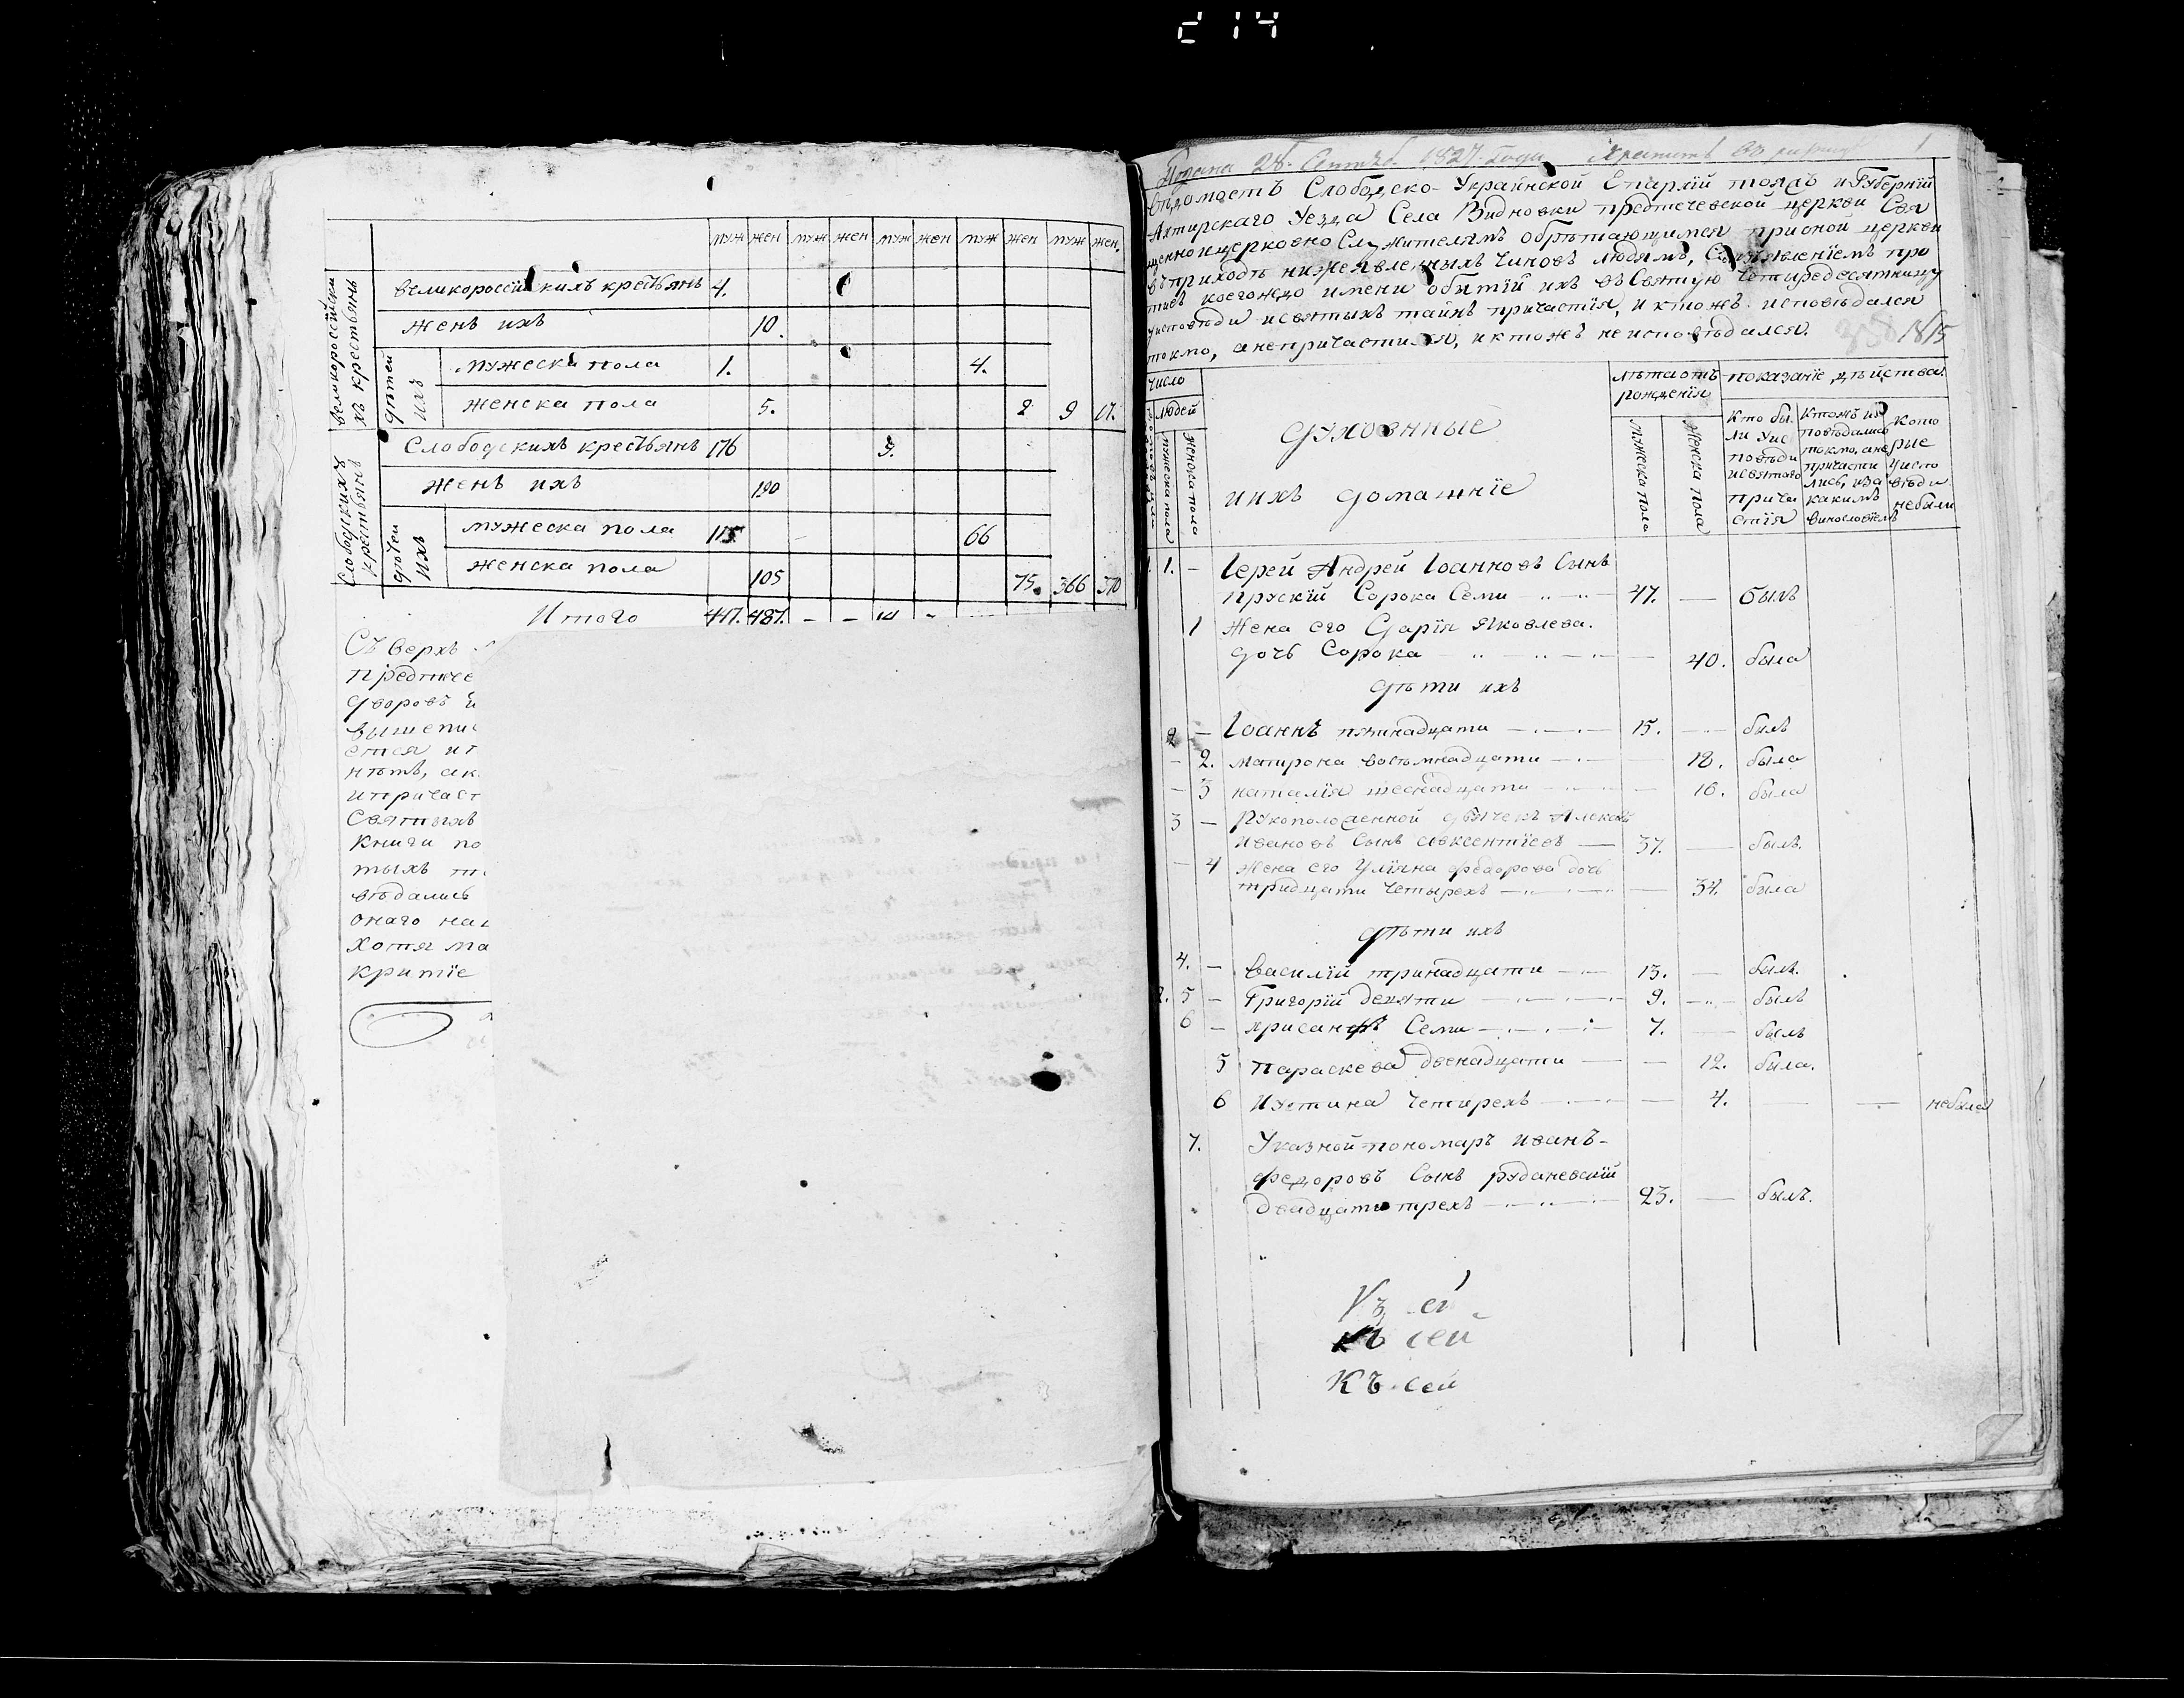 214
муж жен муж жен муж жен муж жен муж жен.
великороссійскихъ крестьянъ
великороссійскихъ крестьянъ 4.
женъ ихъ 10.
дѣтей ихъ
мужеска пола 1. 4.
женска пола 5. 2 9 17.
Слободскихъ крестьянъ
Слободскихъ крестьянъ 176 9.
женъ ихъ 190
дѣтей ихъ
мужеска пола 115 66
женска пола 105 75. 366 370
Итого 417. 487. - - 14 -
Съ верхъ
предтече
дворовъ
вышепис
ется
нѣтъ, ак
ипричаст
Святыхъ
книги по
тыхъ
вѣдались
онаго на
хотя ма
критіе
Подана 28. Септяб. 1827. года Хранить 1
вѣдомость Слободско-Украинской Епархіи тояжъ и Губерніи
Ахтирскаго Уезда Села Видновки предтечевской церкви Свя
щенноицерковно Служителямъ обрѣтающимся прионой церкви
въприходѣ нижеявленныхъ чиновъ людямъ, Созъявленіемъ про
тивъ коегождо имени обытіи ихъ въСвятую четыредесятницу
уисповѣди исвятыхъ тайнъ причастія, и ктожъ исповѣдался
токмо, анепричастился, иктожъ не исповѣдался. 1815
число
людей
мужеска пола
женска пола
духовные
ихъ домашніе
лѣтаотъ рожденія
мужеска пола
женска пола
показаніе дѣйства.
Кто бы
ли уис
повѣди
исвятаго
прича
стія
Ктожъ ис
повѣдались
токмо, ане
причасти
лись, иза
какимъ
винословіемъ
Кото
рые
уиспо
вѣди
небыли
1. 1. - Іерей Андрей Іоанновъ Сынъ
прускій Сорока Семи 47. — былъ
1 Жена его Дарія Яковлева
дочь Сорока — 40. была
дѣти ихъ
2 - Іоаннъ пятнадцати 15. — былъ
- 2. матрона восъмнадцати — 18. была
- 3 наталія шеснадцати — 16. была
3 - Рукоположенной дьячекъ Алексѣй
Ивановъ Сынъ авксентіевъ 37. — былъ.
- 4 Жена его Уліяна федорова дочь
тридцати четырехъ — 34. была
дѣти ихъ
4. - василій тринадцати 13. — былъ.
2. 5 - Григорій девяти 9. — былъ
6 - хрисанфъ Семи 7. — былъ
5 параскева двенадцати — 12. была.
6 Иустина четирехъ — 4. — — небыла
7. Указной пономаръ иванъ-
федоровъ Сынъ руданевскій
двадцати трехъ 23. — былъ.
къ сей
Къ сей